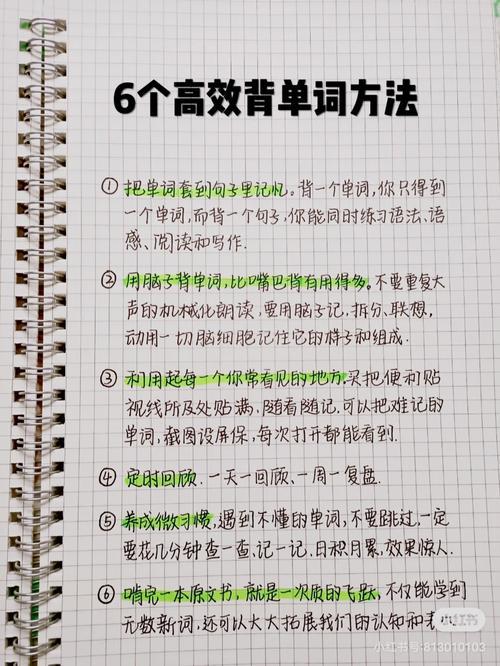 6个高效背单词方法
① 把单词套到句子里记忆。背一个单词,你只得到
一个单词,而背一个句子,你能同时练习语法、语
感、阅读和写作.
② 用脑子背单词,比嘴巴背有用得多。不要重复大
声的机械化朗读,要用脑子记,拆分、联想,
动用一切脑细胞记住它的样子和组成.
③ 利用起每一个你常看见的地方.买把便利贴
视线所及处贴满,随看随记,可以把难记的
单词,截图设屏保,每次打开都能看到.
④ 定时回顾.一天一回顾、一周一复盘.
⑤ 养成微习惯,遇到不懂的单词,不要跳过,一定
要花几分钟查一查、记一记、日积月累,效果惊人.
⑥ 啃完一本原文书,就是一次质的飞跃,不仅能学到
无数新词,还可以大大拓展我们的认知和
小红书
小红书号:813010103